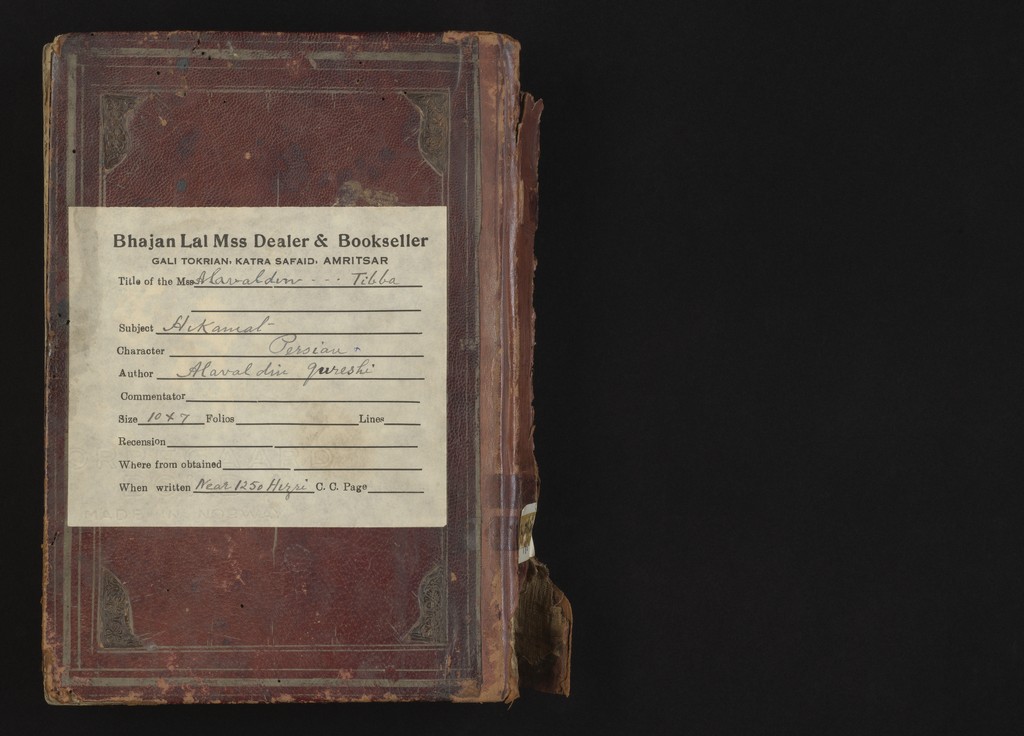 Bhajan Lal Mss Dealer & Bookseller
GALI TOKRIAN, KATRA SAFAID, AMRITSAR
Title of the Mss Alavaldin --- Tibba
Subject Hikamat
Character Persian
Author Alavaldin qureshi
Commentator
Size 10 x 7 Folios Lines
Recension
Where from obtained
When written Near 1250 Hizri C. C. Page
MADE IN NORWAY